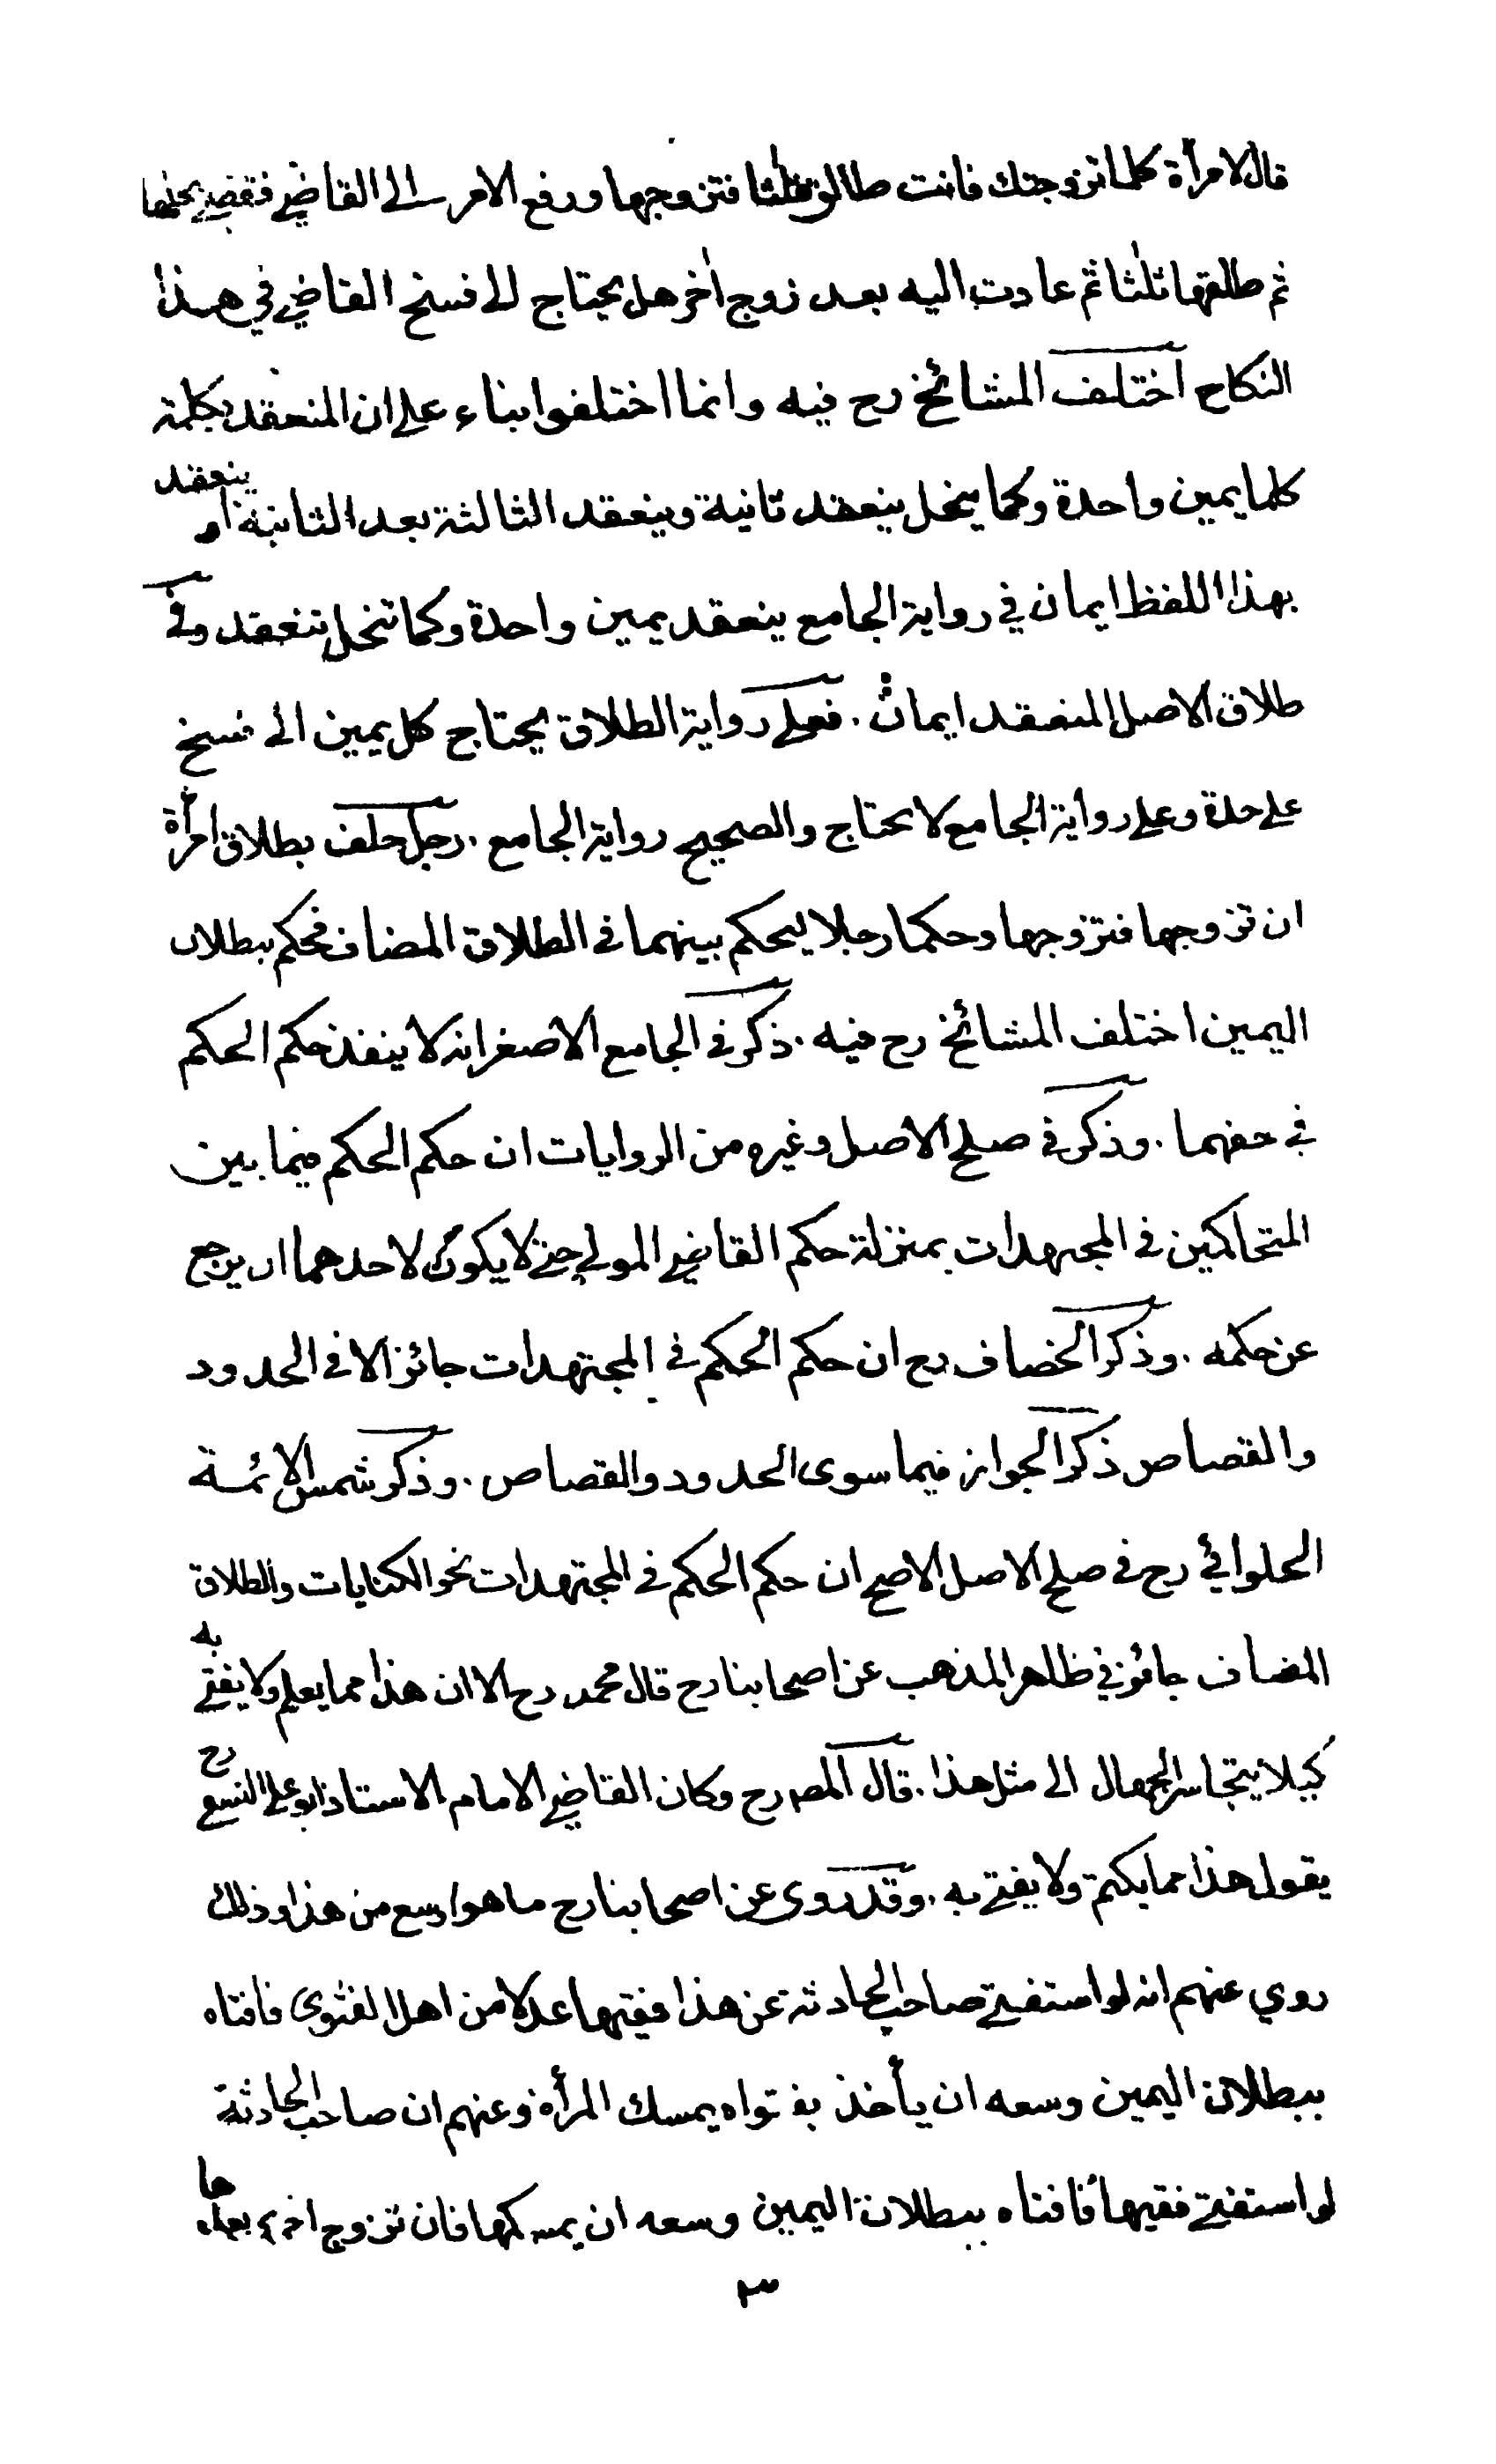 قال لامرأة كلما تزوجتك فانت طالق ثلثا فتزوجها ورفع الامر الى القاضي فقضى بحلها
ثم طلقها ثلثا ثم عادت اليه بعد زوج اٰخر هل يحتاج الى فسخ القاضي في هذا
النكاح اختلف المشائخ رح فيه وانما اختلفوا بناء على ان المنعقد بكلمة
كلما يمين واحدة وكما ينحل ينعقد ثانية وينعقد الثالثة بعد الثانية او ينعقد
بهذا اللفظ ايمان في رواية الجامع ينعقد يمين واحدة وكما تنحل تنعقد وفي
طلاق الاصل المنعقد ايمان . فعلى رواية الطلاق يحتاج كل يمين الى فسخ
على حدة وعلى رواية الجامع لا يحتاج والصحيح رواية الجامع . رجل حلف بطلاق امرأة
ان تزوجها فتزوجها وحكما رجلا ليحكم بينهما في الطلاق المضاف فحكم ببطلان
اليمين اختلف المشائخ رح فيه . ذكر في الجامع الاصغر انه لا ينفذ حكم الحكم
في حقهما . وذكر في صلح الاصل وغيره من الروايات ان حكم الحكم فيما بين
المتحاكمين في المجتهدات بمنزلة حكم القاضي المولى حتى لا يكون لاحدهما ان يرجع
عن حكمه . وذكر الخصاف رح ان حكم الحكم في المجتهدات جائز الا في الحدود
والقصاص ذكر الجواز فيما سوى الحدود والقصاص . وذكر شمس الائمة
الحلوائي رح في صلح الاصل الاصح ان حكم الحكم في المجتهدات نحو الكنايات والطلاق
المضاف جائز في ظاهر المذهب عن اصحابنا رح قال محمد رح الا ان هذا مما يعلم ولا يفتى به
كيلا يتجاسر الجهال الى مثل هذا . قال المصـ رح وكان القاضي الامام الاستاذ ابو علي النسفي رح
يقول هذا مما يكتم ولا يفتى به . وقد روي عن اصحابنا رح ما هو اوسع من هذا وذلك
روي عنهم انه لو استفتى صاحب الحادثة عن هذا فقيها عدلا من اهل الفتوى فافتاه
ببطلان اليمين وسعه ان يأخذ بفتواه يمسك المرأة وعنهم ان صاحب الحادثة
لو استفتى فقيها فافتاه ببطلان اليمين وسعه ان يمسكها فان تزوج اخرى بعدها
٣